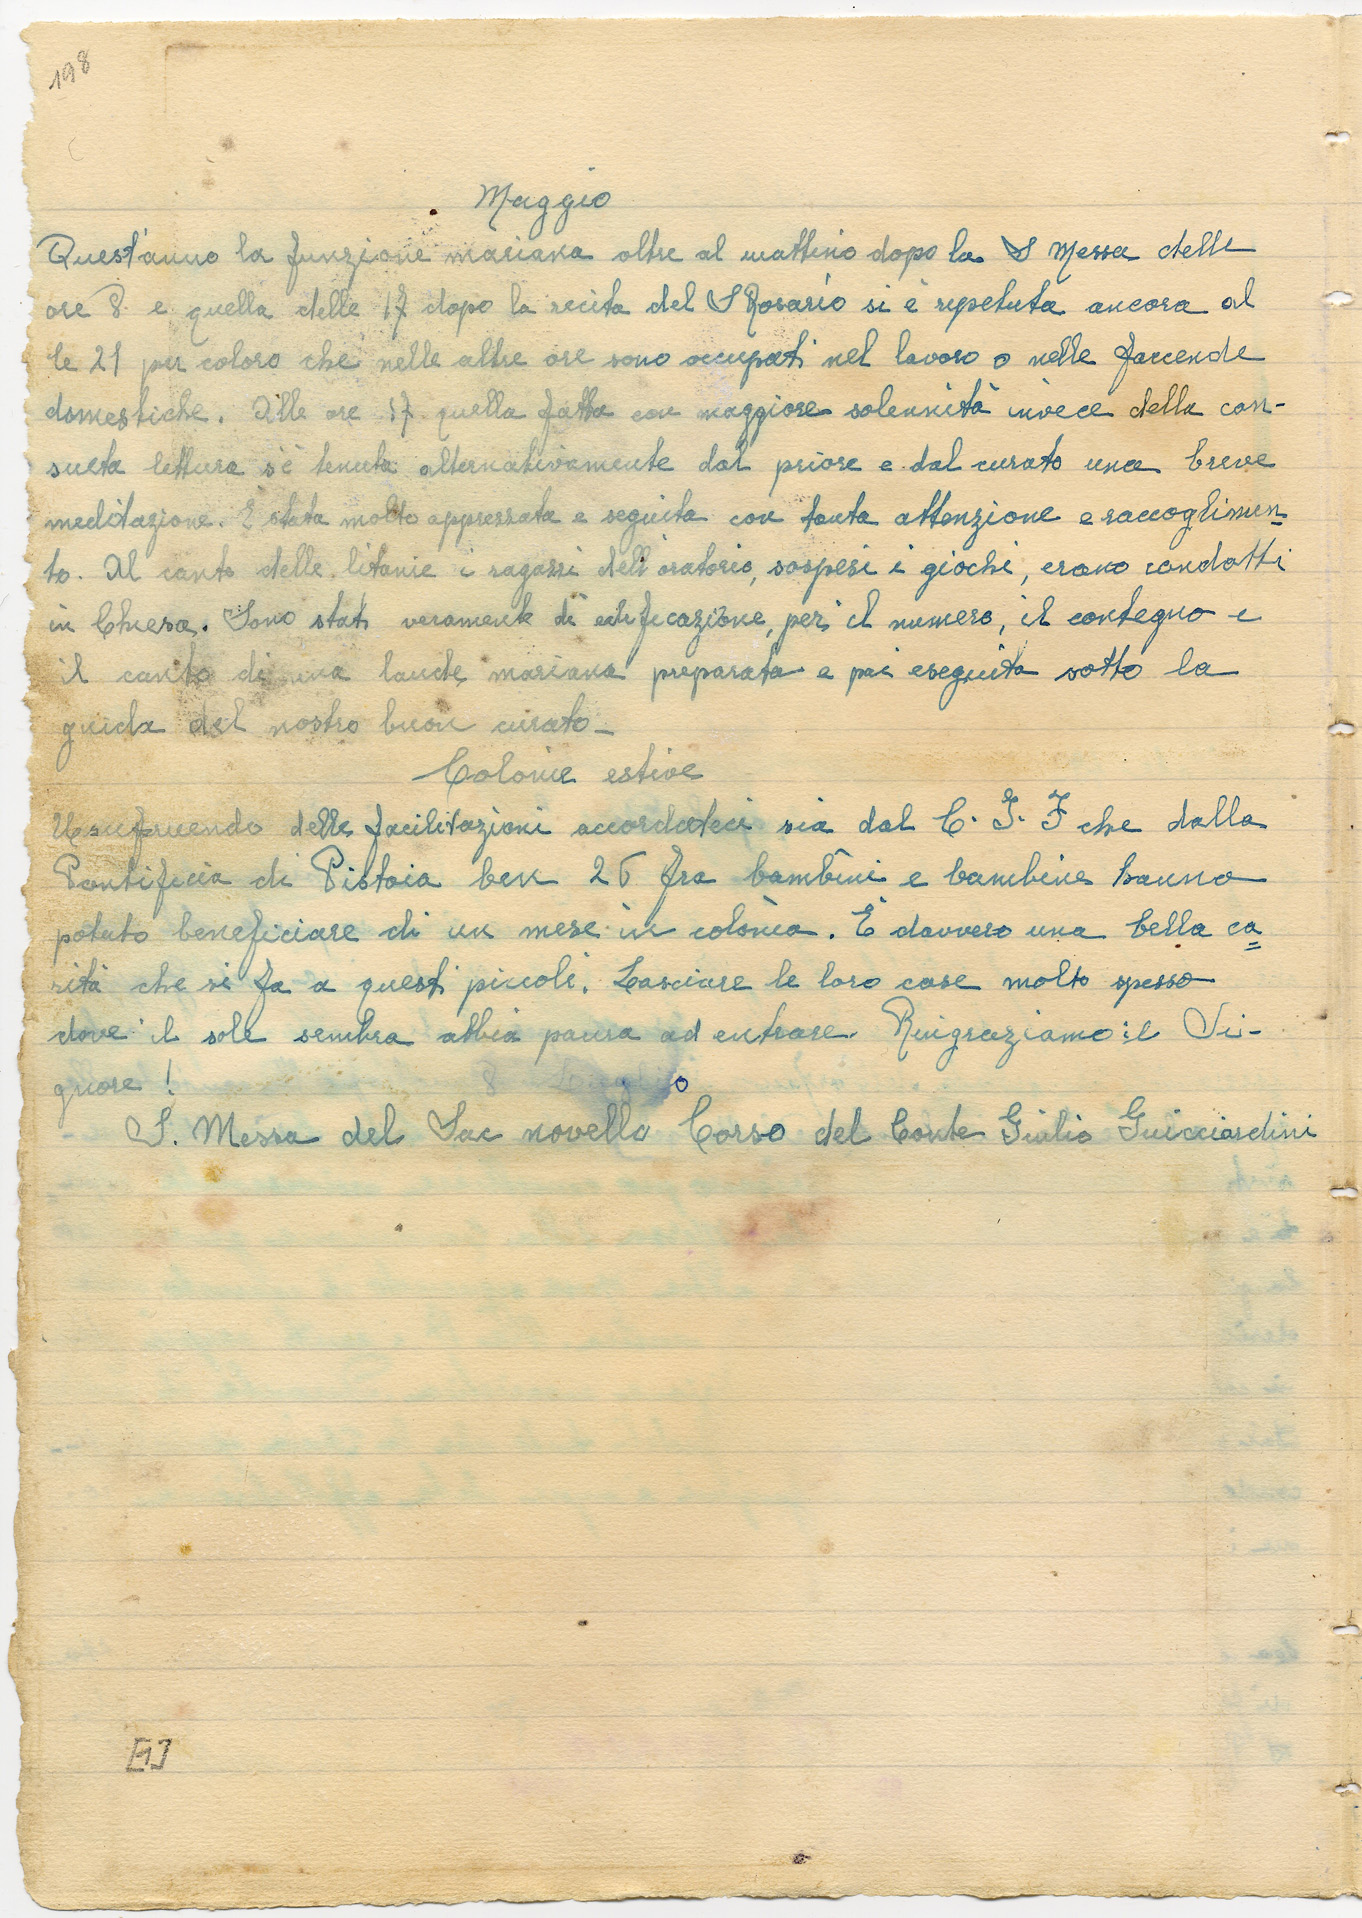 198
Maggio
Quest'anno la funzione mariana oltre al mattino dopo la S Messa delle
ore 8 e quella delle 17 dopo la recita del S Rosario si è ripetuta ancora al
le 21 per coloro che nelle altre ore sono occupati nel lavoro o nelle faccende
domestiche. Alle ore 17 quella fatta con maggiore solennità invece della con-
sueta lettura s'è tenuta alternativamente dal priore e dal curato una breve
meditazione. È stata molto apprezzata e seguita con tanta attenzione e raccoglimen-
to. Al canto delle litanie i ragazzi dell'oratorio, sospesi i giochi, erano condotti
in Chiesa. Sono stati veramente di edificazione, per il numero, il contegno e
il canto di una laude mariana preparata e poi eseguita sotto la
guida del nostro buon curato_
Colonie estive
Usufruendo delle facilitazioni accordateci sia dal C. I. F che dalla
Pontificia di Pistoia ben 26 fra bambini e bambine hanno
potuto beneficiare di un mese in colonia. È davvero una bella ca=
rità che si fa a questi piccoli. Lasciare le loro case molto spesso
dove il sole sembra abbia paura ad entrare. Ringraziamo il Si-
gnore!
8 Luglio
S. Messa del Sac novello Corso del Conte Giulio Guicciardini